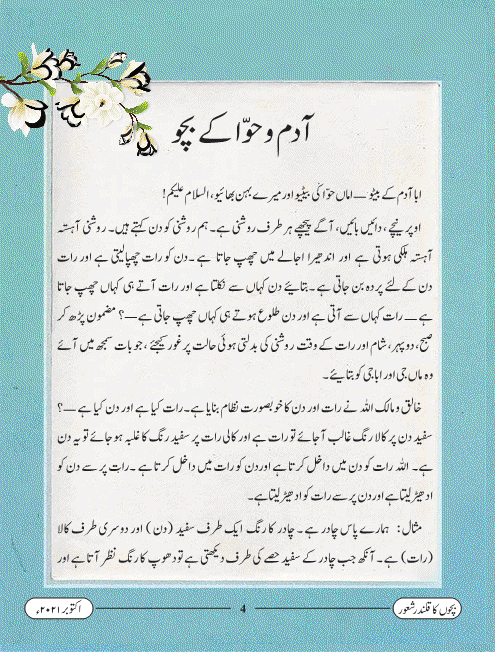 آدم و حوّا کے بچو
ابا آدم کے بیٹو — اماں حوّا کی بیٹیو اور میرے بہن بھائیو، السلام علیکم!
اوپر نیچے، دائیں بائیں، آگے پیچھے ہر طرف روشنی ہے۔ ہم روشنی کو دن کہتے ہیں۔ روشنی آہستہ
آہستہ ہلکی ہوتی ہے اور اندھیرا اجالے میں چھپ جاتا ہے۔ دن کو رات چھپا لیتی ہے اور رات
دن کے لئے پردہ بن جاتی ہے۔ بتایئے دن کہاں سے نکلتا ہے اور رات آتے ہی کہاں چھپ جاتا
ہے — رات کہاں سے آتی ہے اور دن طلوع ہوتے ہی کہاں چھپ جاتی ہے —؟ مضمون پڑھ کر
صبح، دوپہر، شام اور رات کے وقت روشنی کی بدلتی ہوئی حالت پر غور کیجئے، جو بات سمجھ میں آئے
وہ ماں جی اور ابا جی کو بتایئے۔
خالق و مالک اللہ نے رات اور دن کا خوبصورت نظام بنایا ہے۔ رات کیا ہے اور دن کیا ہے —؟
سفید دن پر کالا رنگ غالب آ جائے تو رات ہے اور کالی رات پر سفید رنگ کا غلبہ ہو جائے تو یہ دن
ہے۔ اللہ رات کو دن میں داخل کرتا ہے اور دن کو رات میں داخل کرتا ہے۔ رات پر سے دن کو
ادھیڑ لیتا ہے اور دن پر سے رات کو ادھیڑ لیتا ہے۔
مثال: ہمارے پاس چادر ہے۔ چادر کا رنگ ایک طرف سفید (دن) اور دوسری طرف کالا
(رات) ہے۔ آنکھ جب چادر کے سفید حصے کی طرف دیکھتی ہے تو دھوپ کا رنگ نظر آتا ہے اور
بچوں کا قلندر شعور 4 اکتوبر ۲۰۲۱ء